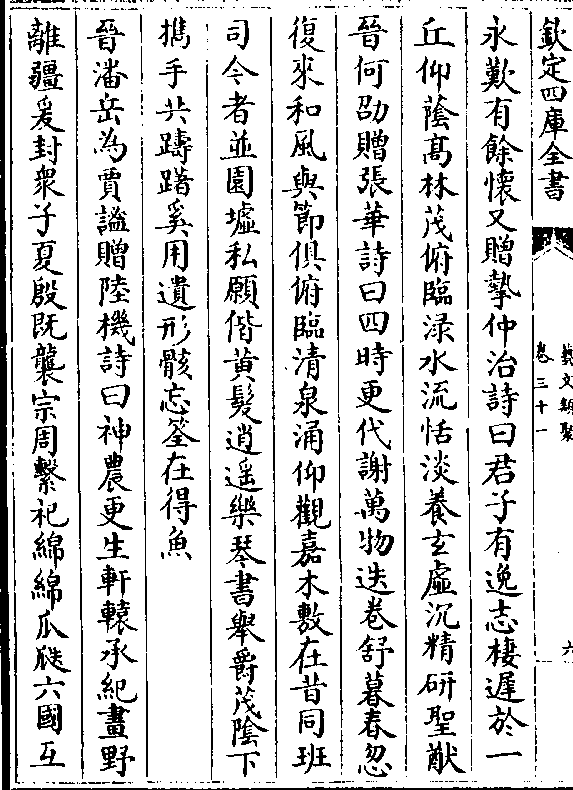 欽定四庫全書
藝文類聚
卷三十一
六
永歎有餘懷又贈摯仲治詩曰君子有逸志棲遲於一
丘仰蔭髙林茂俯臨渌水流恬淡養玄虛沉精研聖猷
晉何劭贈張華詩曰四時更代謝萬物迭卷舒暮春忽
復來和風與節俱俯臨清泉涌仰觀嘉木敷在昔同班
司今者並園墟私願偕黃髮逍遥樂琴書舉爵茂陰下
擕手共躊躇奚用遺形骸忘筌在得魚
晉潘岳為賈謐贈陸機詩曰神農更生軒轅承紀畫野
離疆爰封衆子夏殷既襲宗周繫祀綿綿瓜瓞六國互